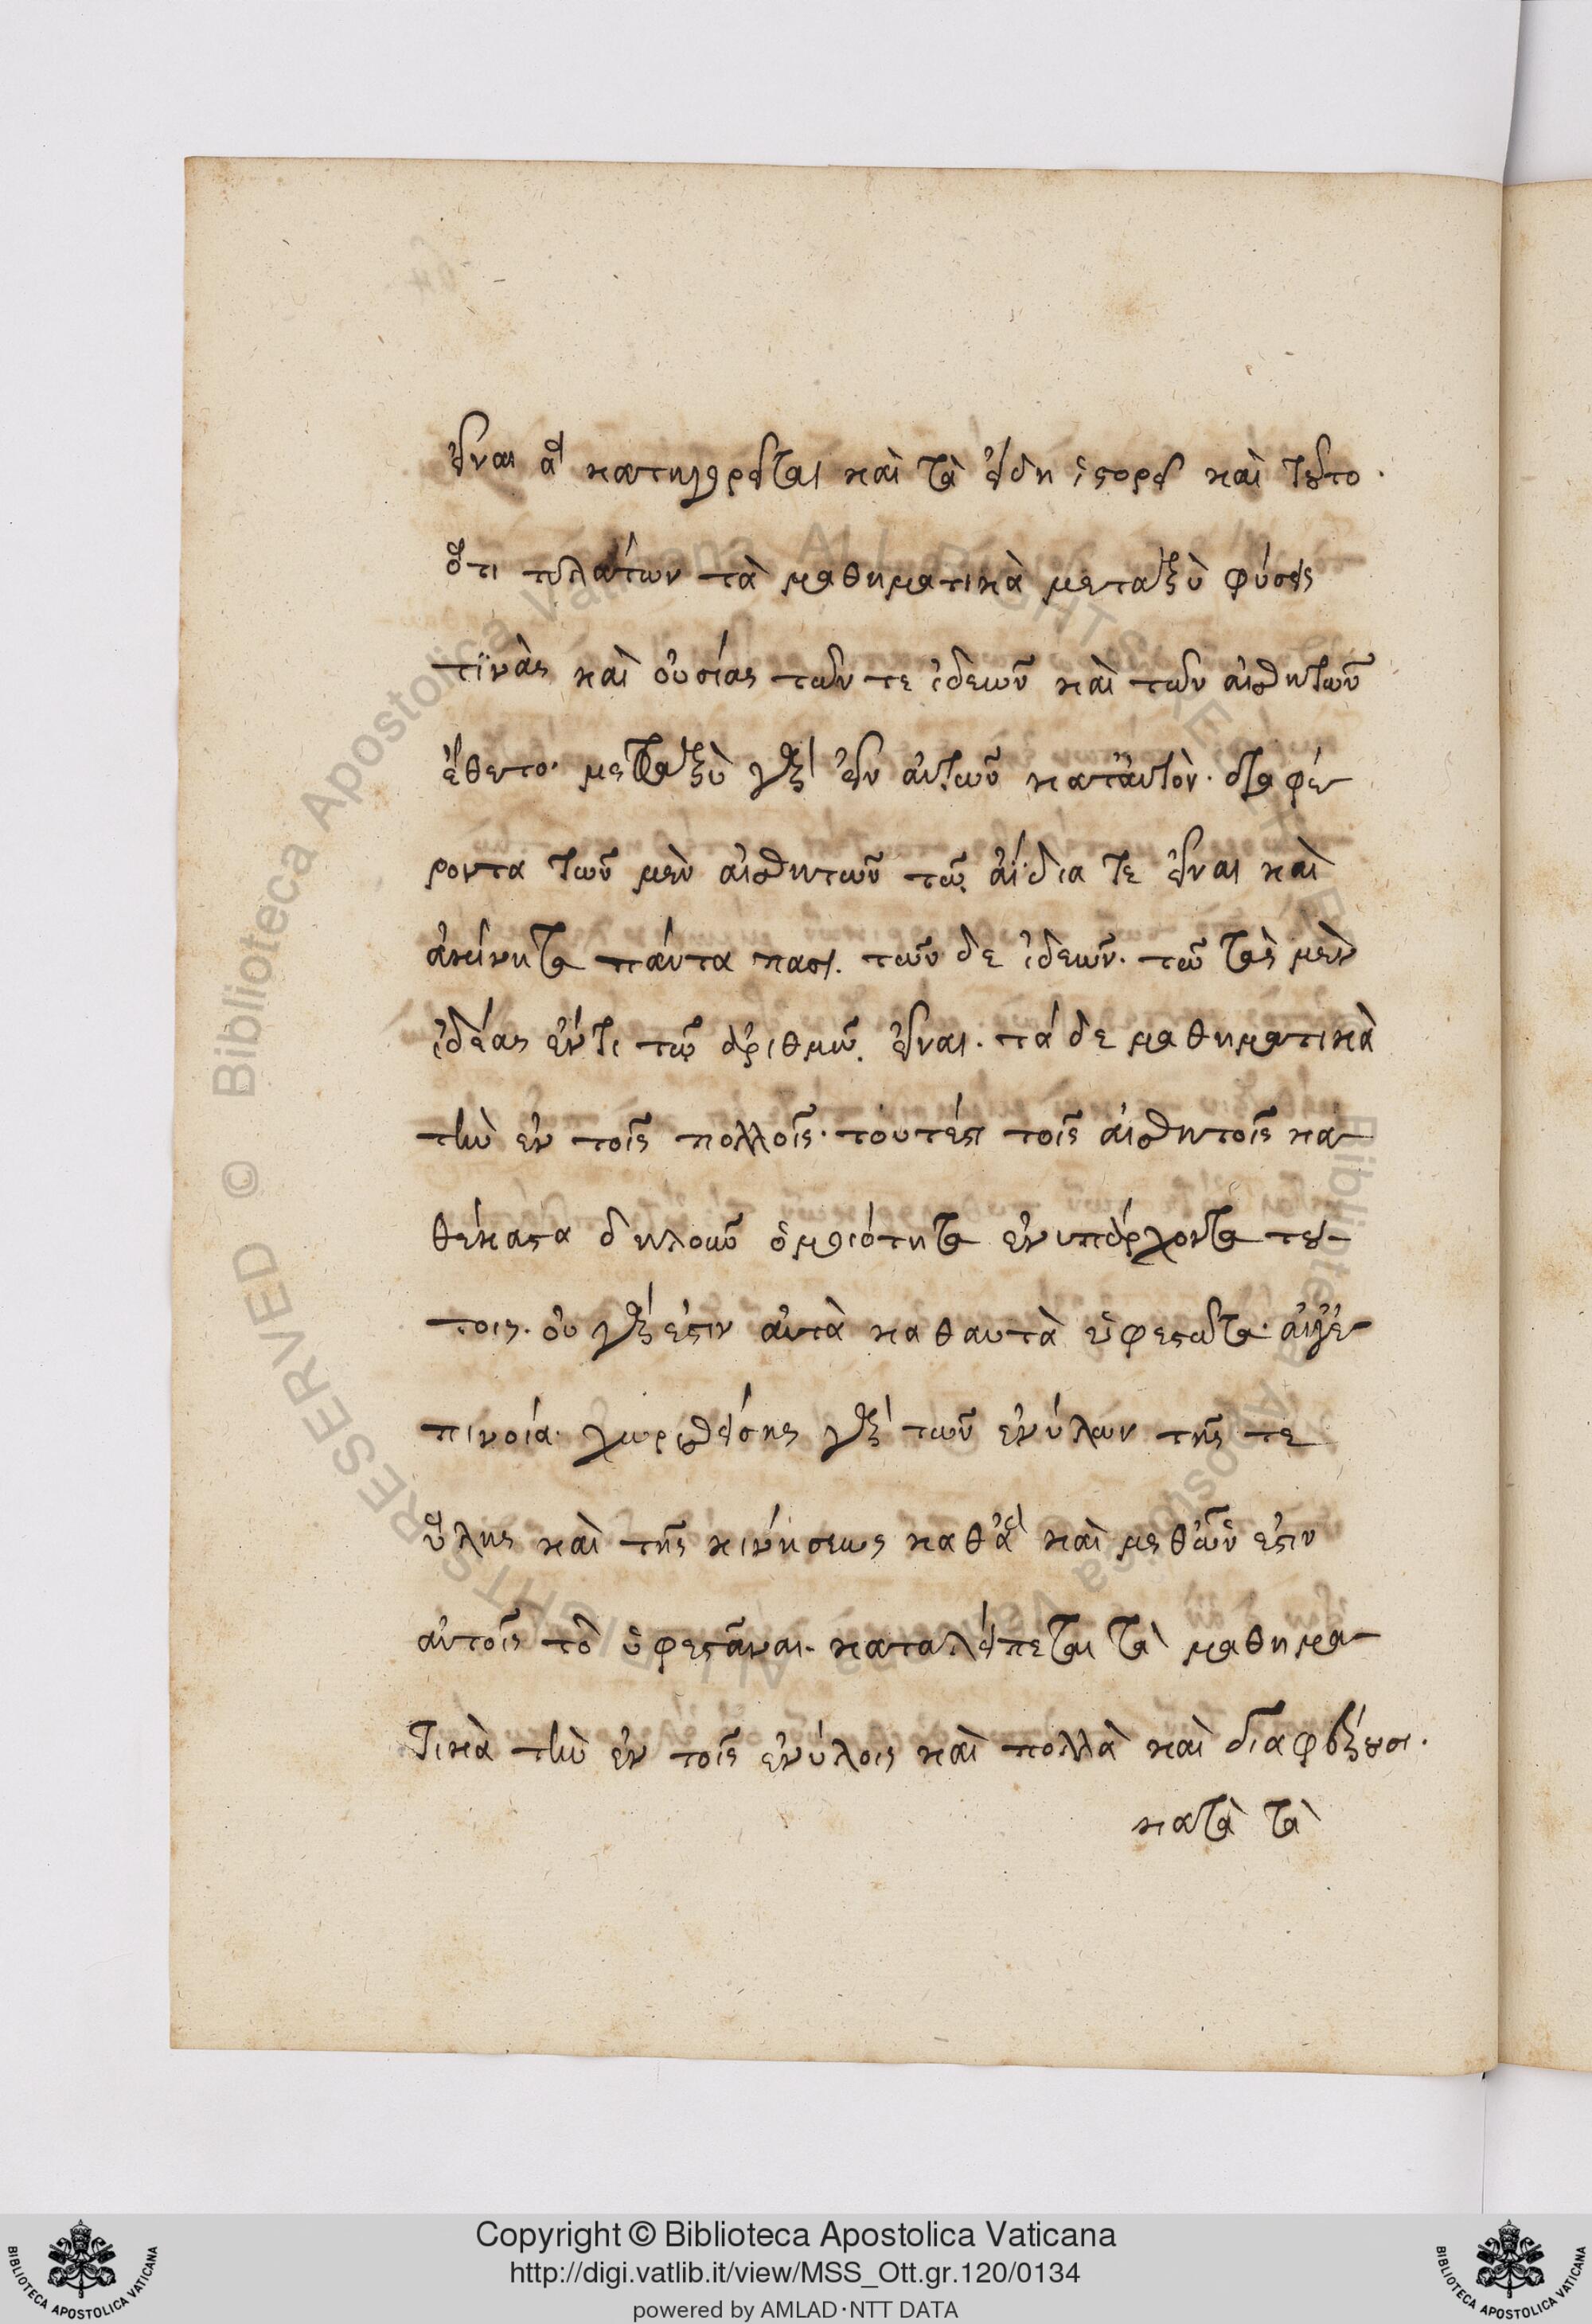 εἶναι ἃ κατηγορεῖται καὶ τὰ εἴδη ἱστορεῖ καὶ τοῦτο·
ὅτι πλάτων τὰ μαθηματικὰ μεταξὺ φύσεις
τϊνὰς καὶ οὐσίας τῶν τε ἰδεῶν καὶ τῶν αἰσθητῶν
ἔθετο· μεταξὺ γὰρ εἶν αὐτῶν κατ' αὐτὸν· διαφέ-
ροντα τῶν μὲν αἰσθητῶν τῶ ἀΐδια τε εἶναι καὶ
ἀκίνητα πάντα πασι. τῶν δε ἰδεῶν· τῶ τὰς μὲν
ἰδέας ἔν τι τῶ ἀριθμῶ εἶναι· τά δε μαθηματικὰ
τὴν ἐν τοῖς πολλοῖς· τουτέστι τοῖς αἰσθητοῖς κα-
θέκαστα δηλοῦν ὁμοιότητα ἐνυπάρχοντα τού-
τοις· οὐ γάρ ἐστιν αὐτὰ καθαυτὰ ὑφεστῶτα· ἀλλ' ἐ-
πινοία· χωρισθείσης γὰρ τῶν ἐνύλων τῆς τε
ὕλης καὶ τῆς κινήσεως καθ' ἃ καὶ μεθ' ὧν ἐστιν
αὐτοῖς τὸ ὑφεστᾶναι· καταλείπεται τὰ μαθημα-
τικὰ τὴν ἐν τοῖς ἐνύλοις καὶ πολλὰ καὶ διαφέρουσι·
κατὰ τὰ
Copyright © Biblioteca Apostolica Vaticana
http://digi.vatlib.it/view/MSS_Ott.gr.120/0134
powered by AMLAD·NTT DATA